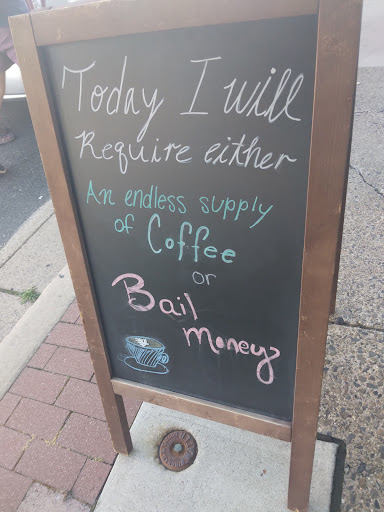 Today I will
Require either
An endless supply
of Coffee
or
Bail
money